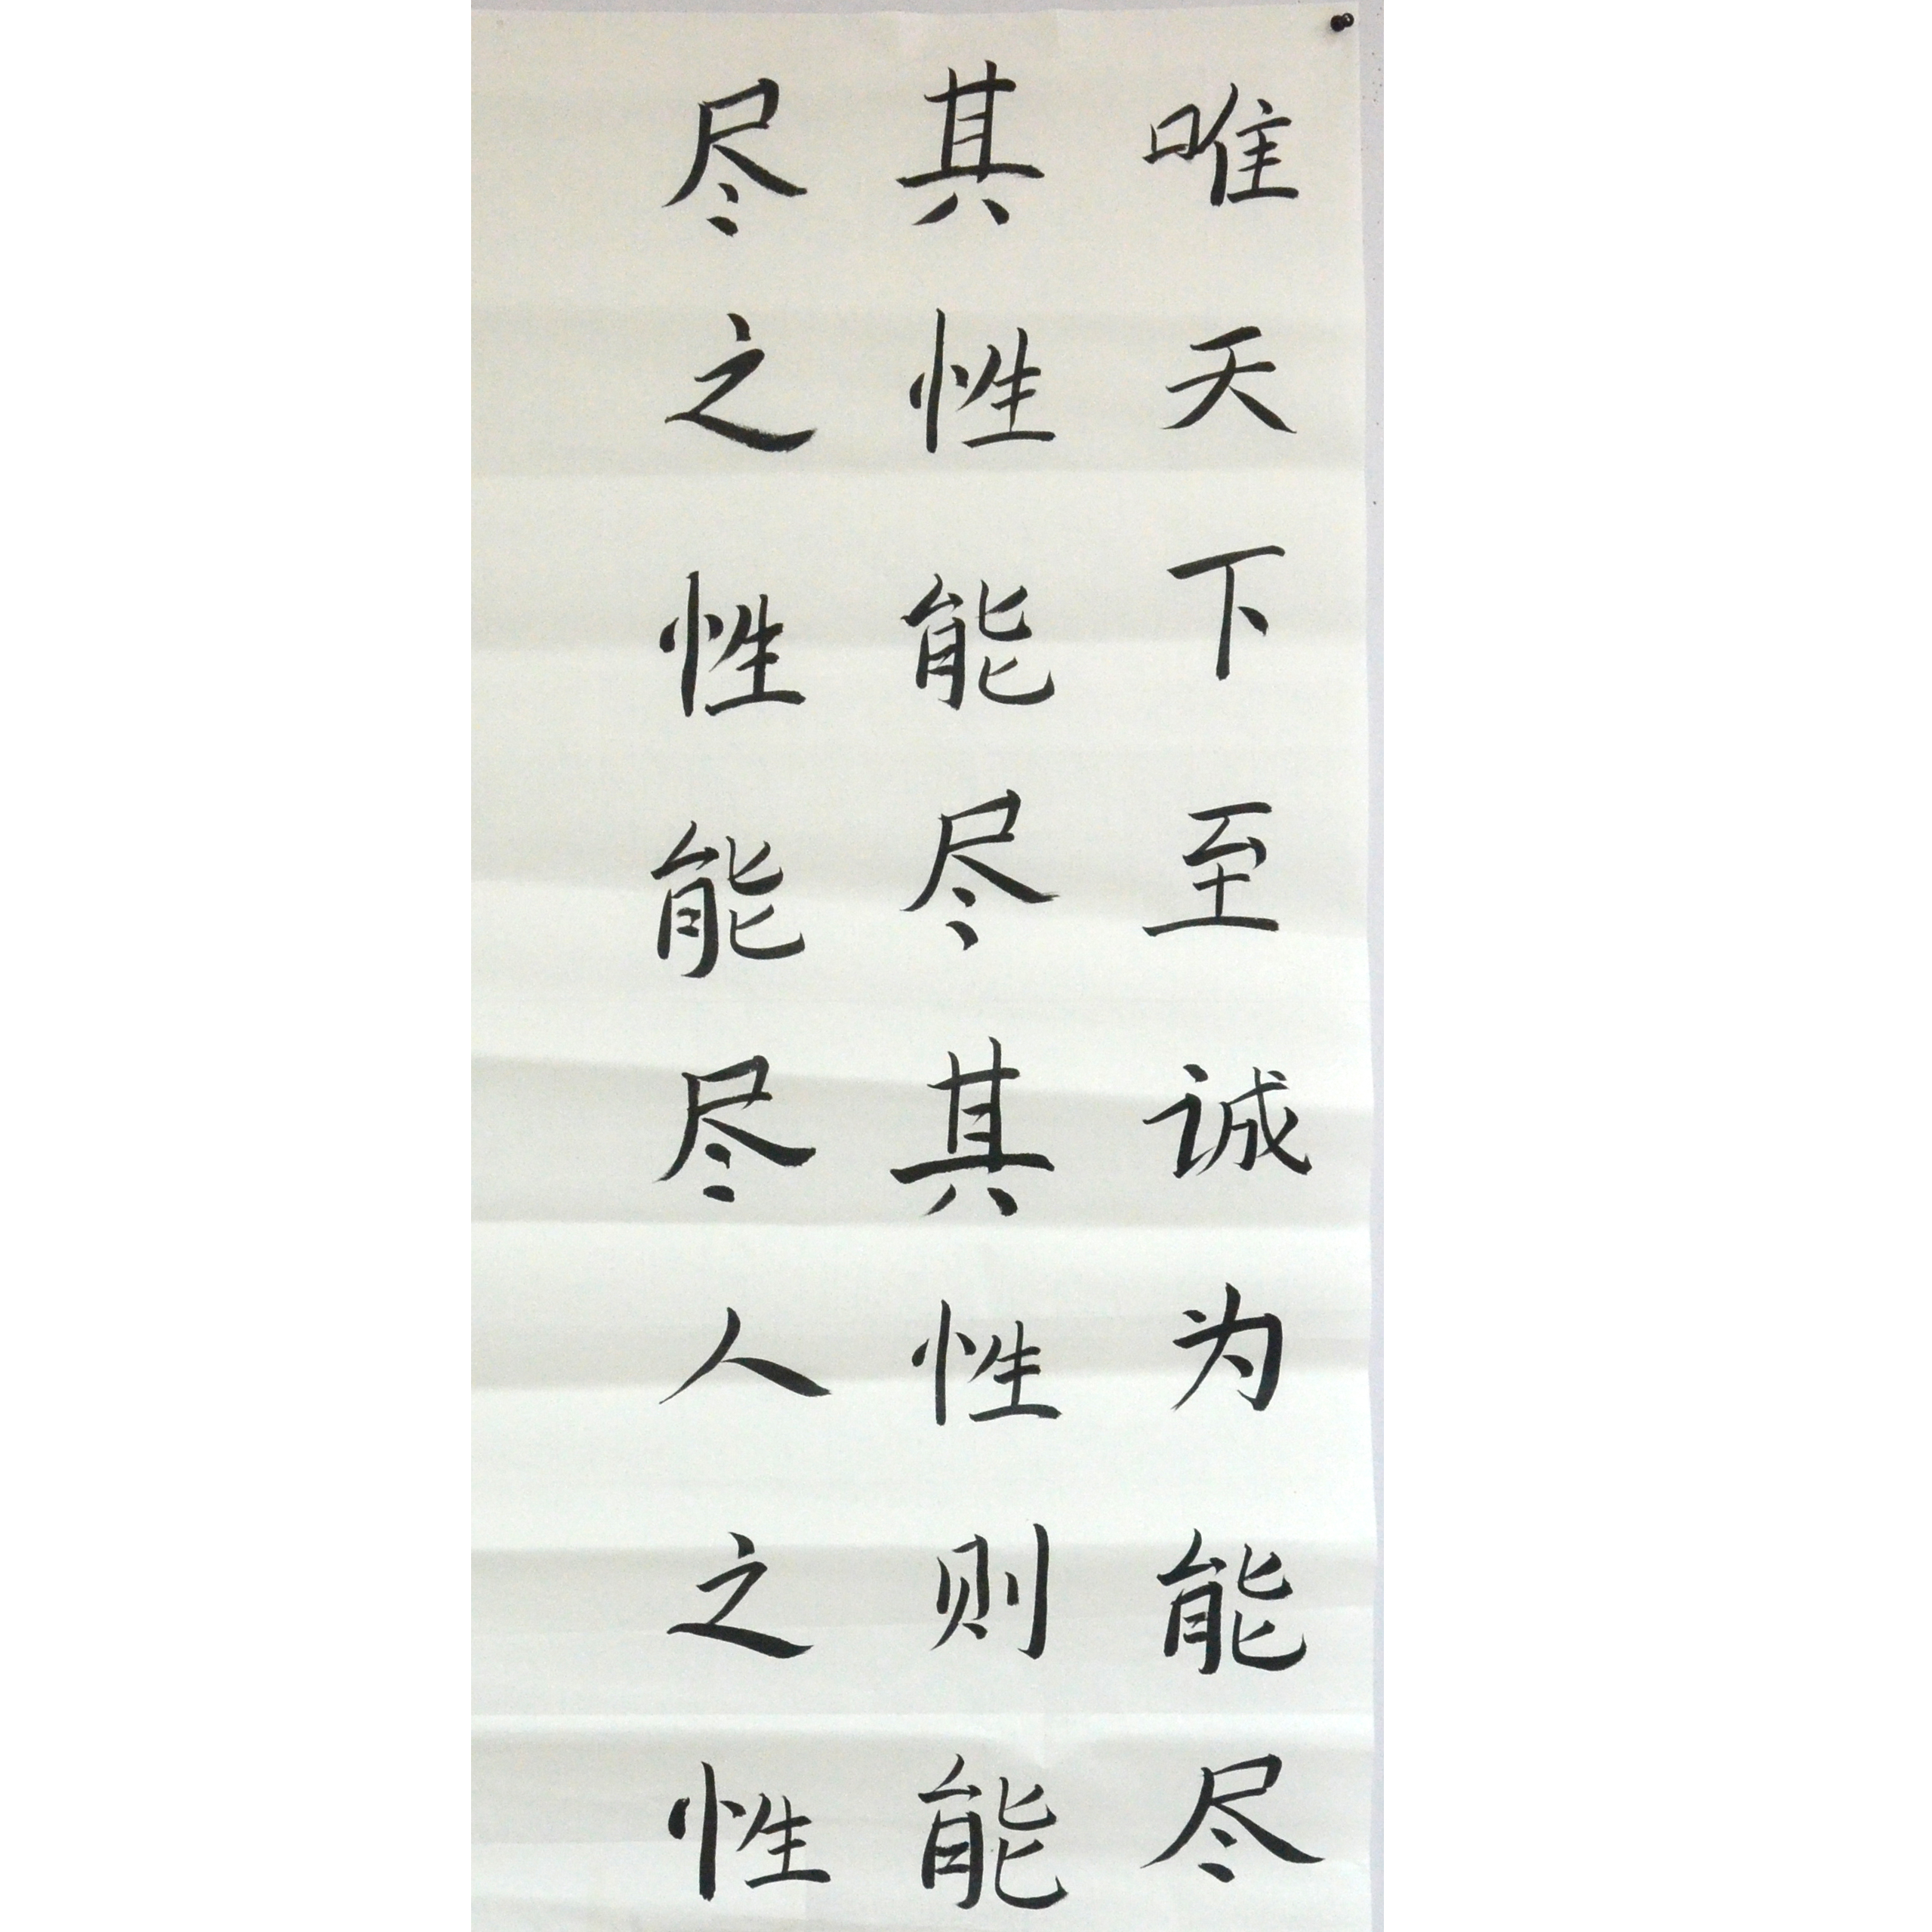 唯天下至诚为能尽
其性能尽其性则能
尽之性能尽人之性